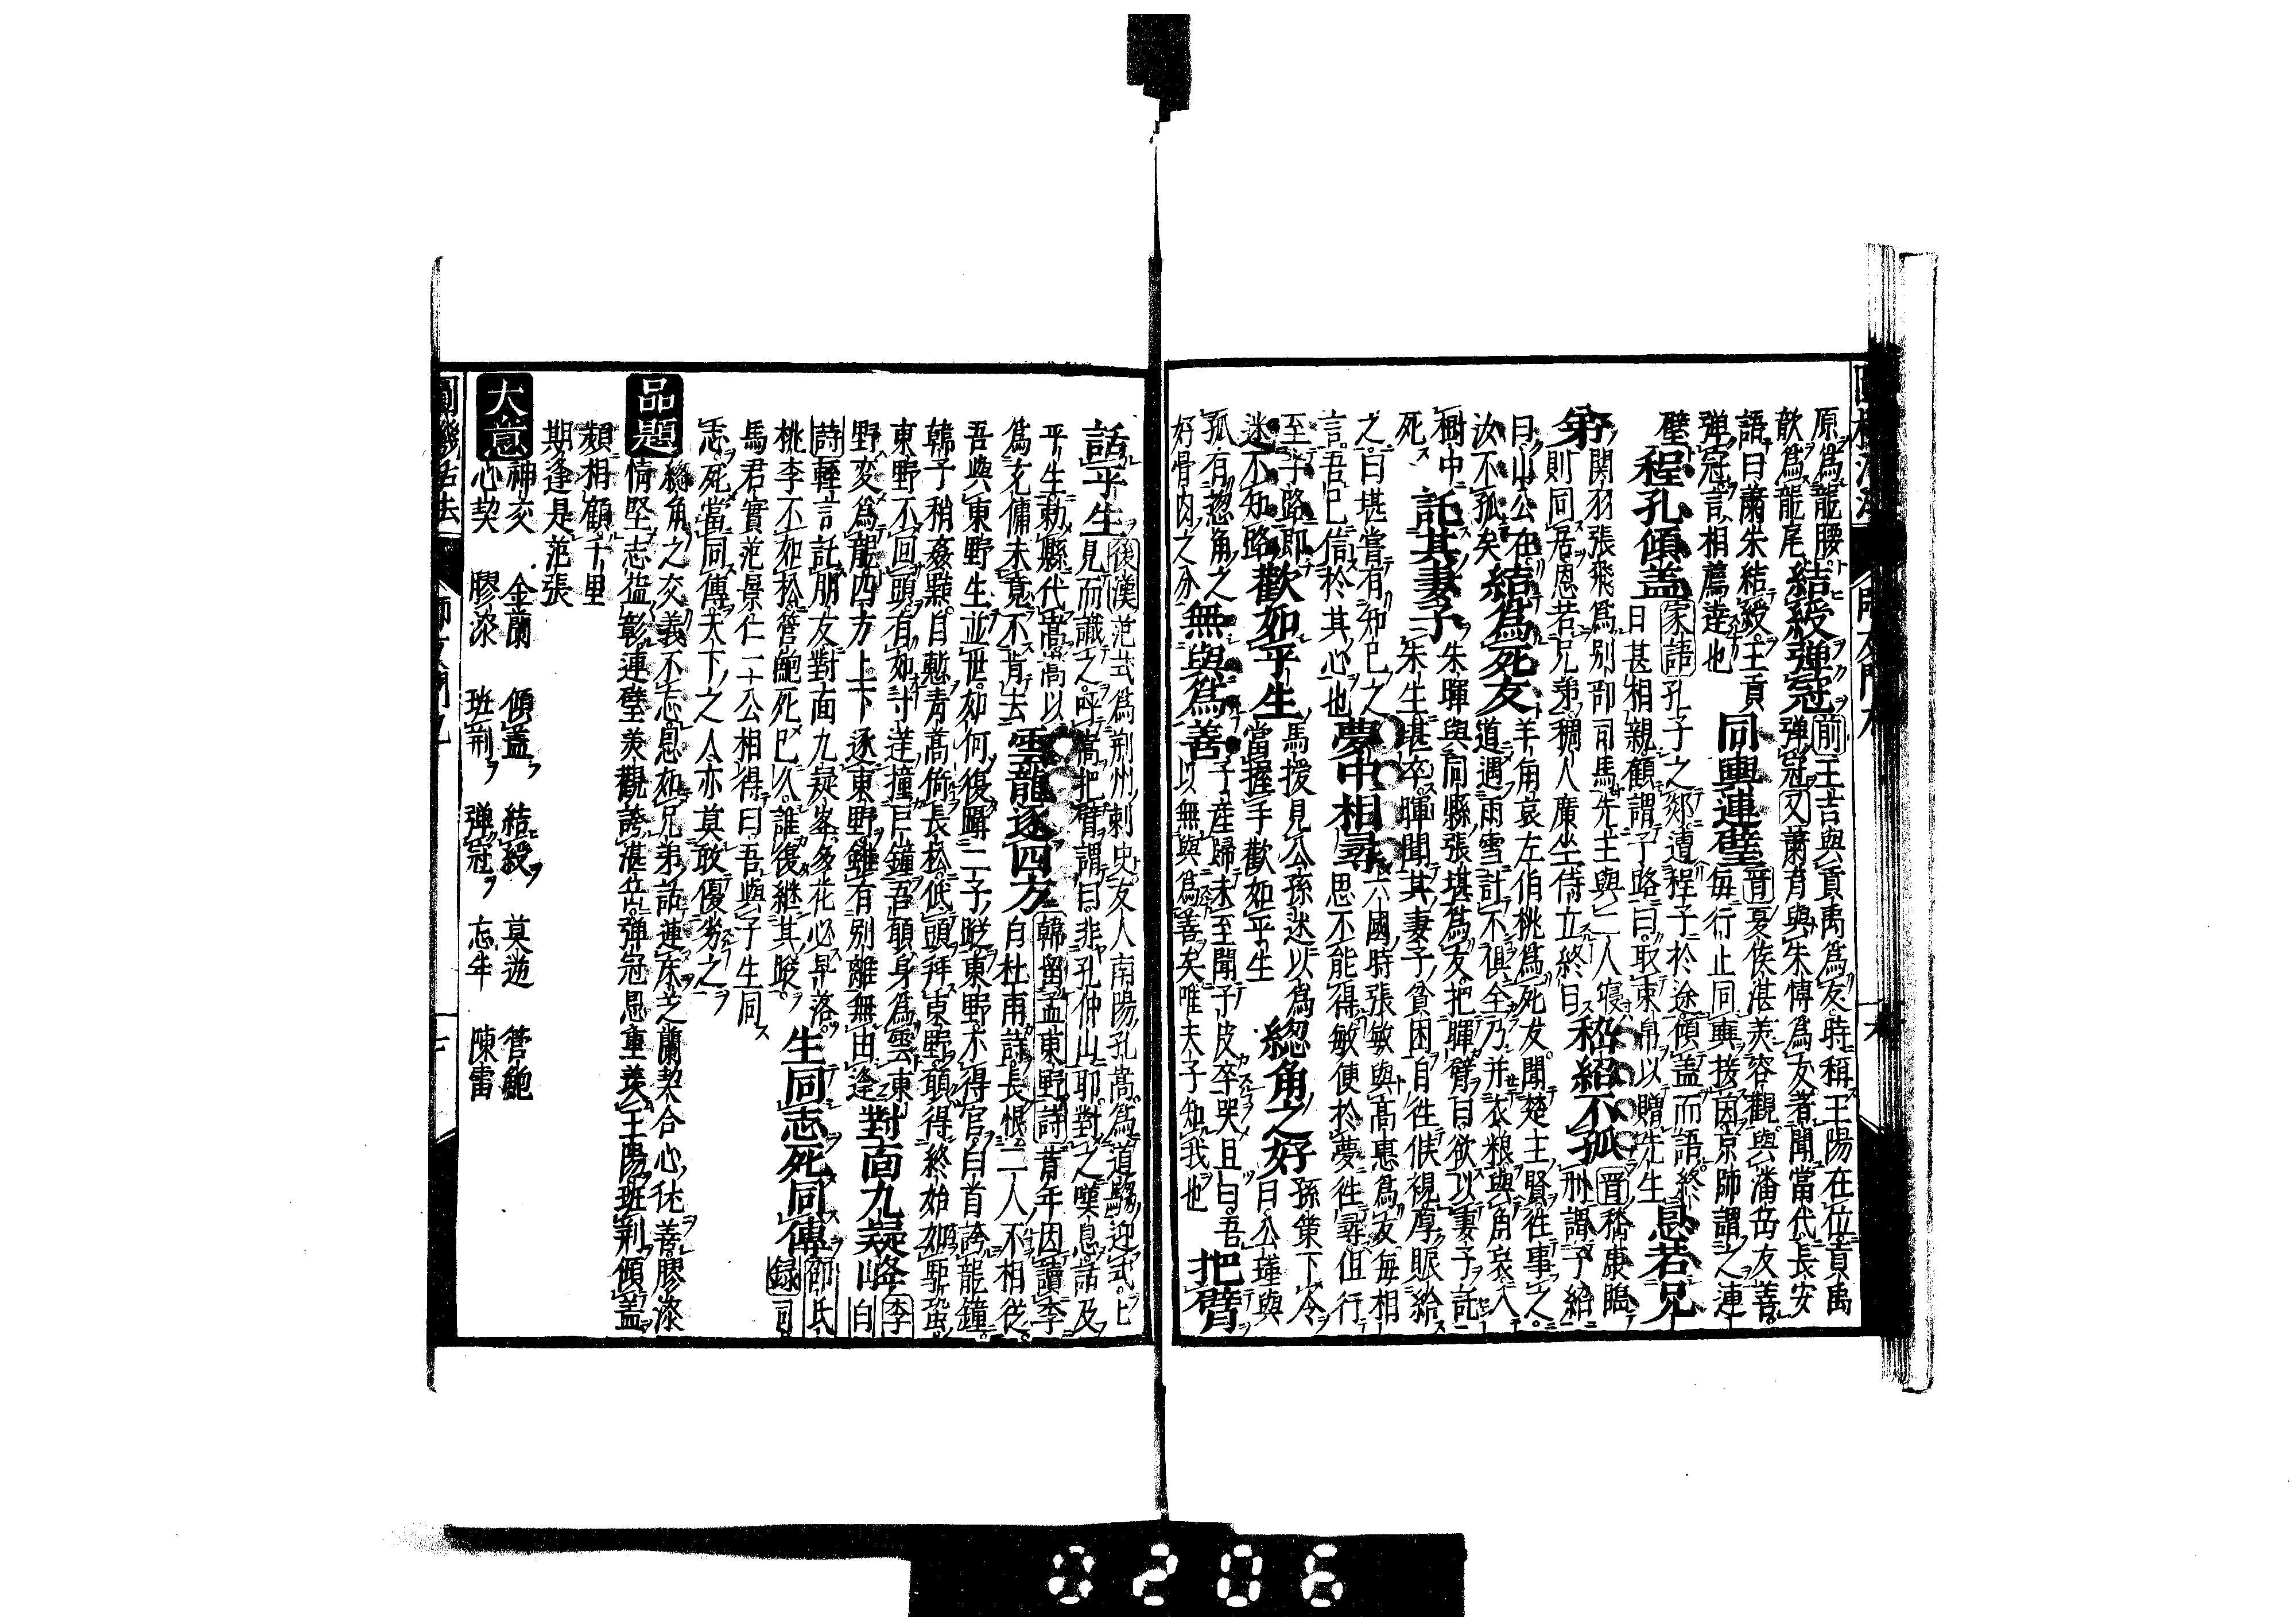 原爲龍腰
歆爲龍尾結綬彈冠前王吉與貢禹爲友時稱王陽在位貢禹
彈冠又蕭育與朱博爲友著聞當代長安
語曰蕭朱結綬王貢
彈冠言相薦達也同輿連璧晉夏侯湛美容觀與潘岳友善
每行止同輿接茵京師謂之連
璧程孔傾盖家語孔子之郯遭程子於途傾盖而語終
日甚相親顧謂子路曰取束帛以贈先生恩若兄
弟關羽張飛爲別部司馬先主與二人寢
則同居恩若兄弟稠人廣坐侍立終日嵇紹不孤晉嵇康臨
刑謂子紹
曰山公在
汝不孤矣結爲死友羊角哀左伯桃爲死友聞楚王賢往事之
道遇雨雪計不俱全乃并衣粮與角哀入
樹中
死託其妻子朱暉與同縣張堪爲友把暉臂曰欲以妻子託
朱生堪卒暉聞其妻子貧困自往候視厚賑給
之曰堪嘗有知己之
言吾已信於其心也夢中相尋六國時張敏與高惠爲友每相
思不能得敏便於夢往尋但行
至半路即
迷不知路歡如平生馬援見公孫述以爲
當握手歡如平生総角之好孫策下令
曰公瑾與
孤有惣角之
好骨肉之分無與爲善子産歸未至聞子皮卒哭且曰吾
以無與爲善矣唯夫子知我也把臂
話平生後漢范式爲荆州刺史友人南陽孔嵩爲道騶迎式
見而識之呼嵩把臂謂曰非孔仲山耶對之嘆息話及
平生勅縣代嵩嵩以
爲先傭未竟不肯去雲龍逐四方韓留孟東野詩昔年因讀李
白杜甫詩長恨二人不相從
吾與東野生並世如何復躡二子蹤東野不得官白首誇龍鐘
韓子稍姦黠自慙青蒿倚長松低頭拜東野願得終始如駏蛩
東野不回頭有如寸莛撞巨鐘吾願身爲雲東
野変爲龍四方上下逐東野雖有別離無由逢對面九疑峰李
白
詩輕言託朋友對面九疑峯多花必早落
桃李不如松管鮑死已久誰復継其蹤生同志死同傳邵氏
録司
馬君實范景仁二公相得曰吾與子生同
志死當同傳天下之人亦莫敢優劣之
品題 総角之交義不忘恩如兄弟話連床芝蘭契合心休善膠漆
情堅志益彰連璧美觀誇湛岳彈冠恩重美王陽班荆傾盖
頻相顧千里
期逢是范張
大意 神交 金蘭 傾盖 結綬 莫逆 管鮑
心契 膠漆 班荆 彈冠 忘年 陳雷
0206